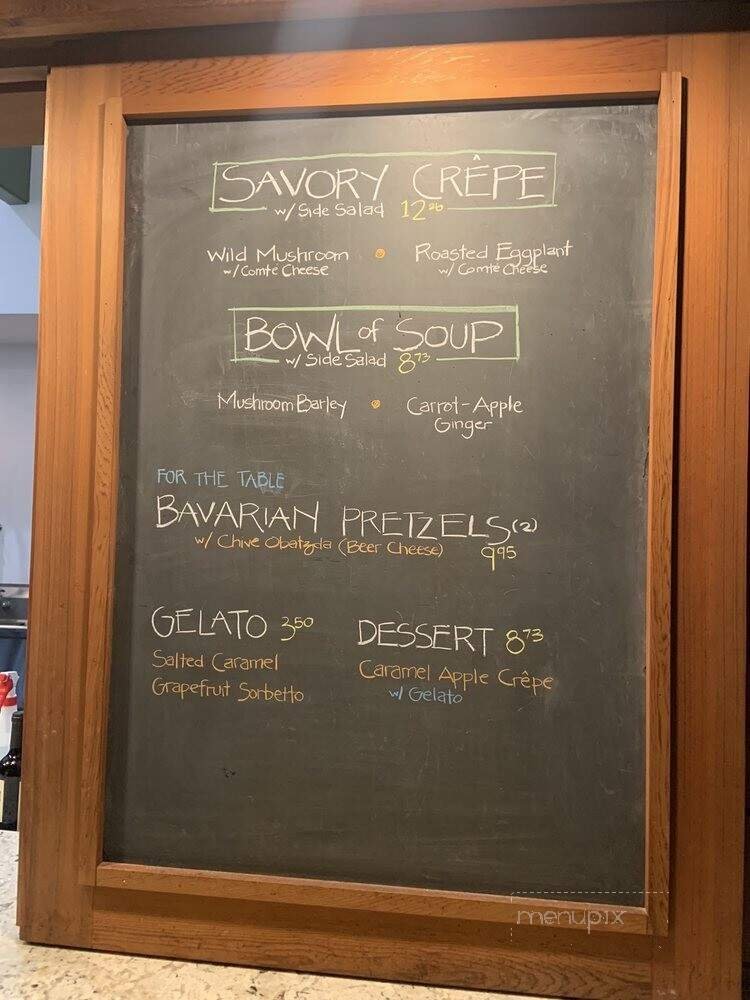 SAVORY CRÊPE
w/ Side Salad 12²⁶
Wild Mushroom • Roasted Eggplant
w/ Comté Cheese w/ Comté Cheese
BOWL of SOUP
w/ Side Salad 8⁷³
Mushroom Barley • Carrot-Apple
Ginger
FOR THE TABLE
BAVARIAN PRETZELS (2)
w/ Chive Obatzda (Beer Cheese) 9⁹⁵
GELATO 3⁵⁰
Salted Caramel
Grapefruit Sorbetto
DESSERT 8⁷³
Caramel Apple Crêpe
w/ Gelato
menupix